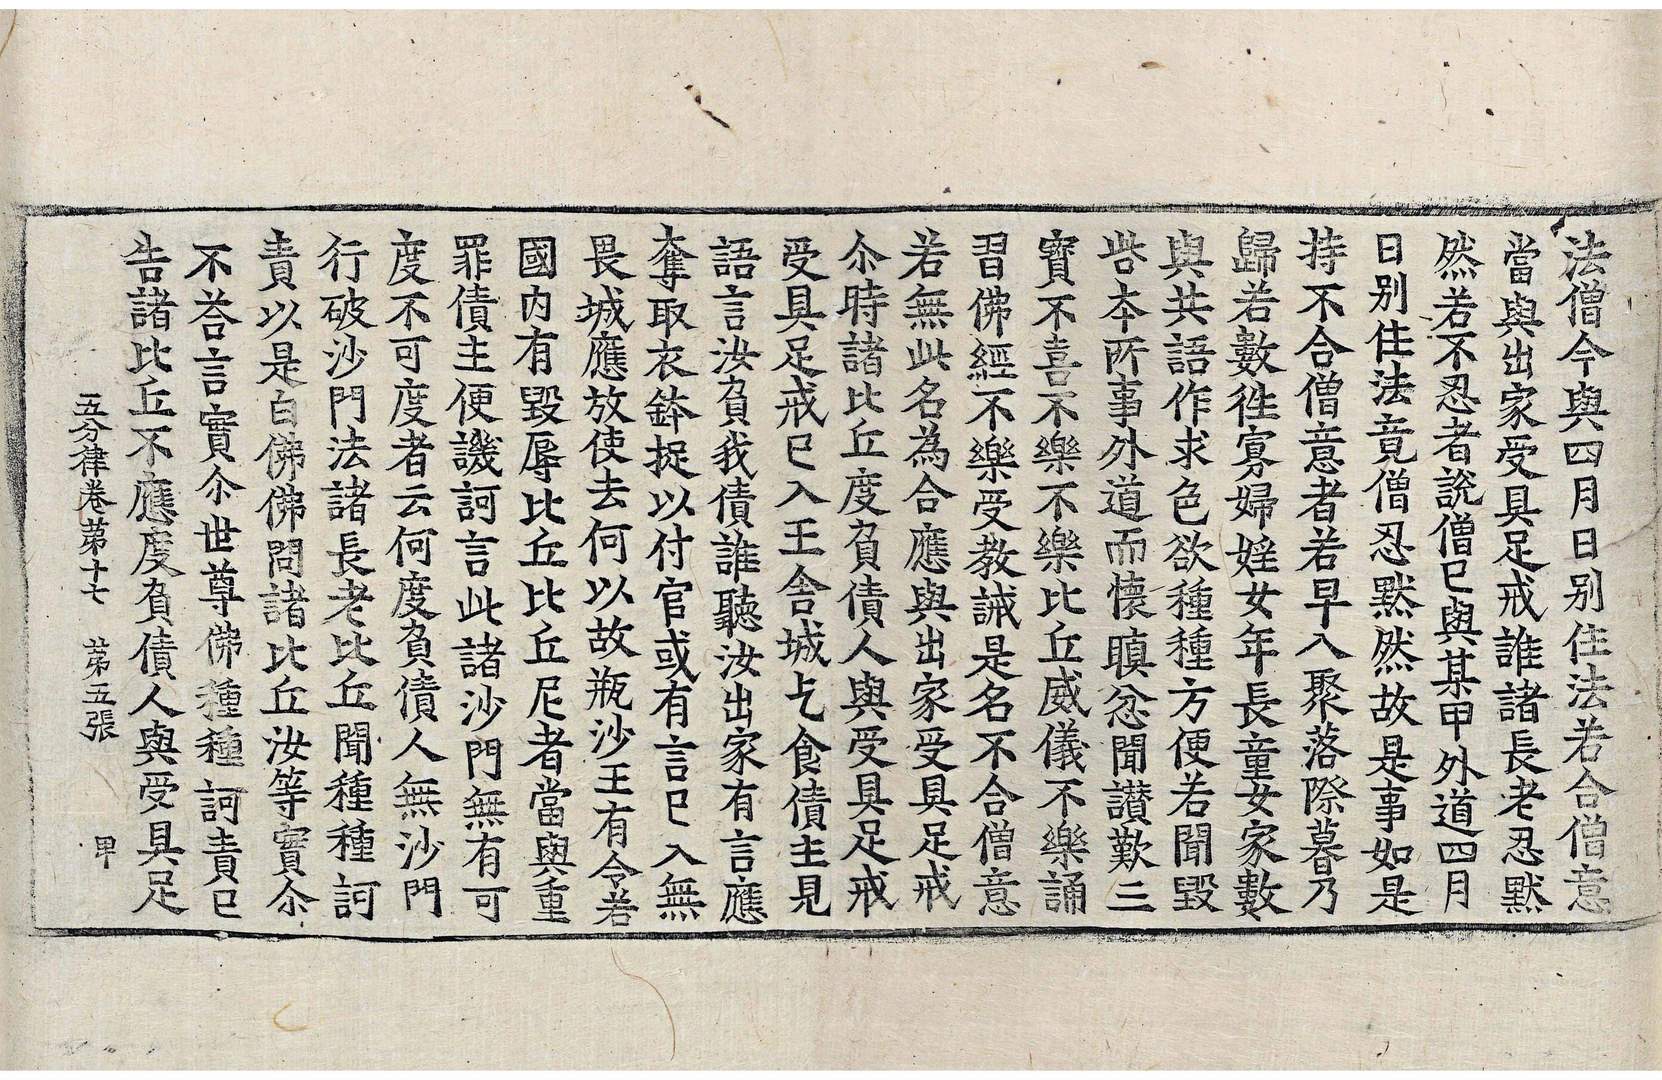 法僧今與四月日別住法若合僧意
當與出家受具足戒誰諸長老忍默
然若不忍者說僧已與某甲外道四月
日別住法竟僧忍默然故是事如是
持不合僧意者若早入聚落際暮乃
歸若數徃寡婦婬女年長童女家數
與共語作求色欲種種方便若聞毀
呰本所事外道而懷瞋忿聞讃歎三
寶不喜不樂不樂比丘威儀不樂誦
習佛經不樂受教誡是名不合僧意
若無此名為合應與出家受具足戒
尒時諸比丘度負債人與受具足戒
受具足戒已入王舍城乞食債主見
語言汝負我債誰聽汝出家有言應
奪取衣鉢捉以付官或有言已入無
畏城應放使去何以故瓶沙王有令若
國内有毀辱比丘比丘尼者當與重
罪債主便譏訶言此諸沙門無有可
度不可度者云何度負債人無沙門
行破沙門法諸長老比丘聞種種訶
責以是白佛佛問諸比丘汝等實尒
不荅言實尒世尊佛種種訶責已
告諸比丘不應度負債人與受具足
五分律卷第十七 第五張 甲